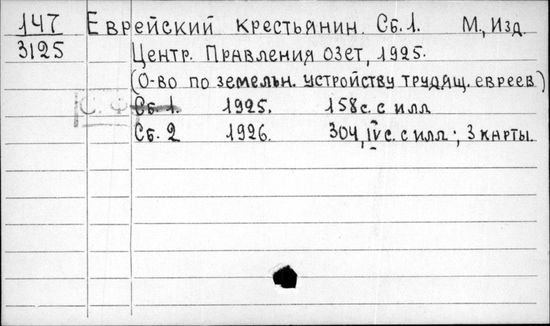 147 Еврейский крестьянин. Сб. 1. М., Изд.
3125 Центр. Правления ОЗЕТ, 1925.
(О-во по земельн. устройству трудящ. евреев)
С. Ф Сб. 1. 1925. 158с. с илл
Сб. 2 1926. 304, IV с. с илл.; 3 карты.